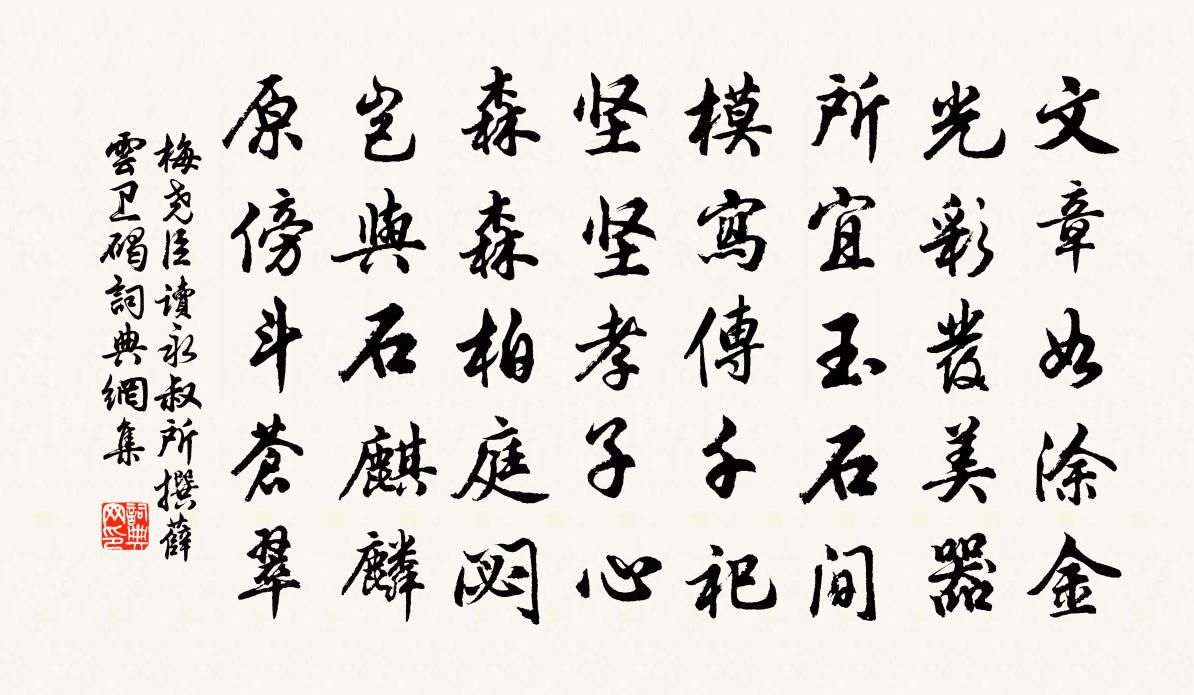 文章如涂金
光彩發美器
所宜玉石间
模寫傳千祀
坚坚孝子心
森森柏庭閟
岂與石麒麟
原傍斗蒼翠
梅尧臣讀永叔所撰薛
雲卫碣詞典網集
詞典
网印